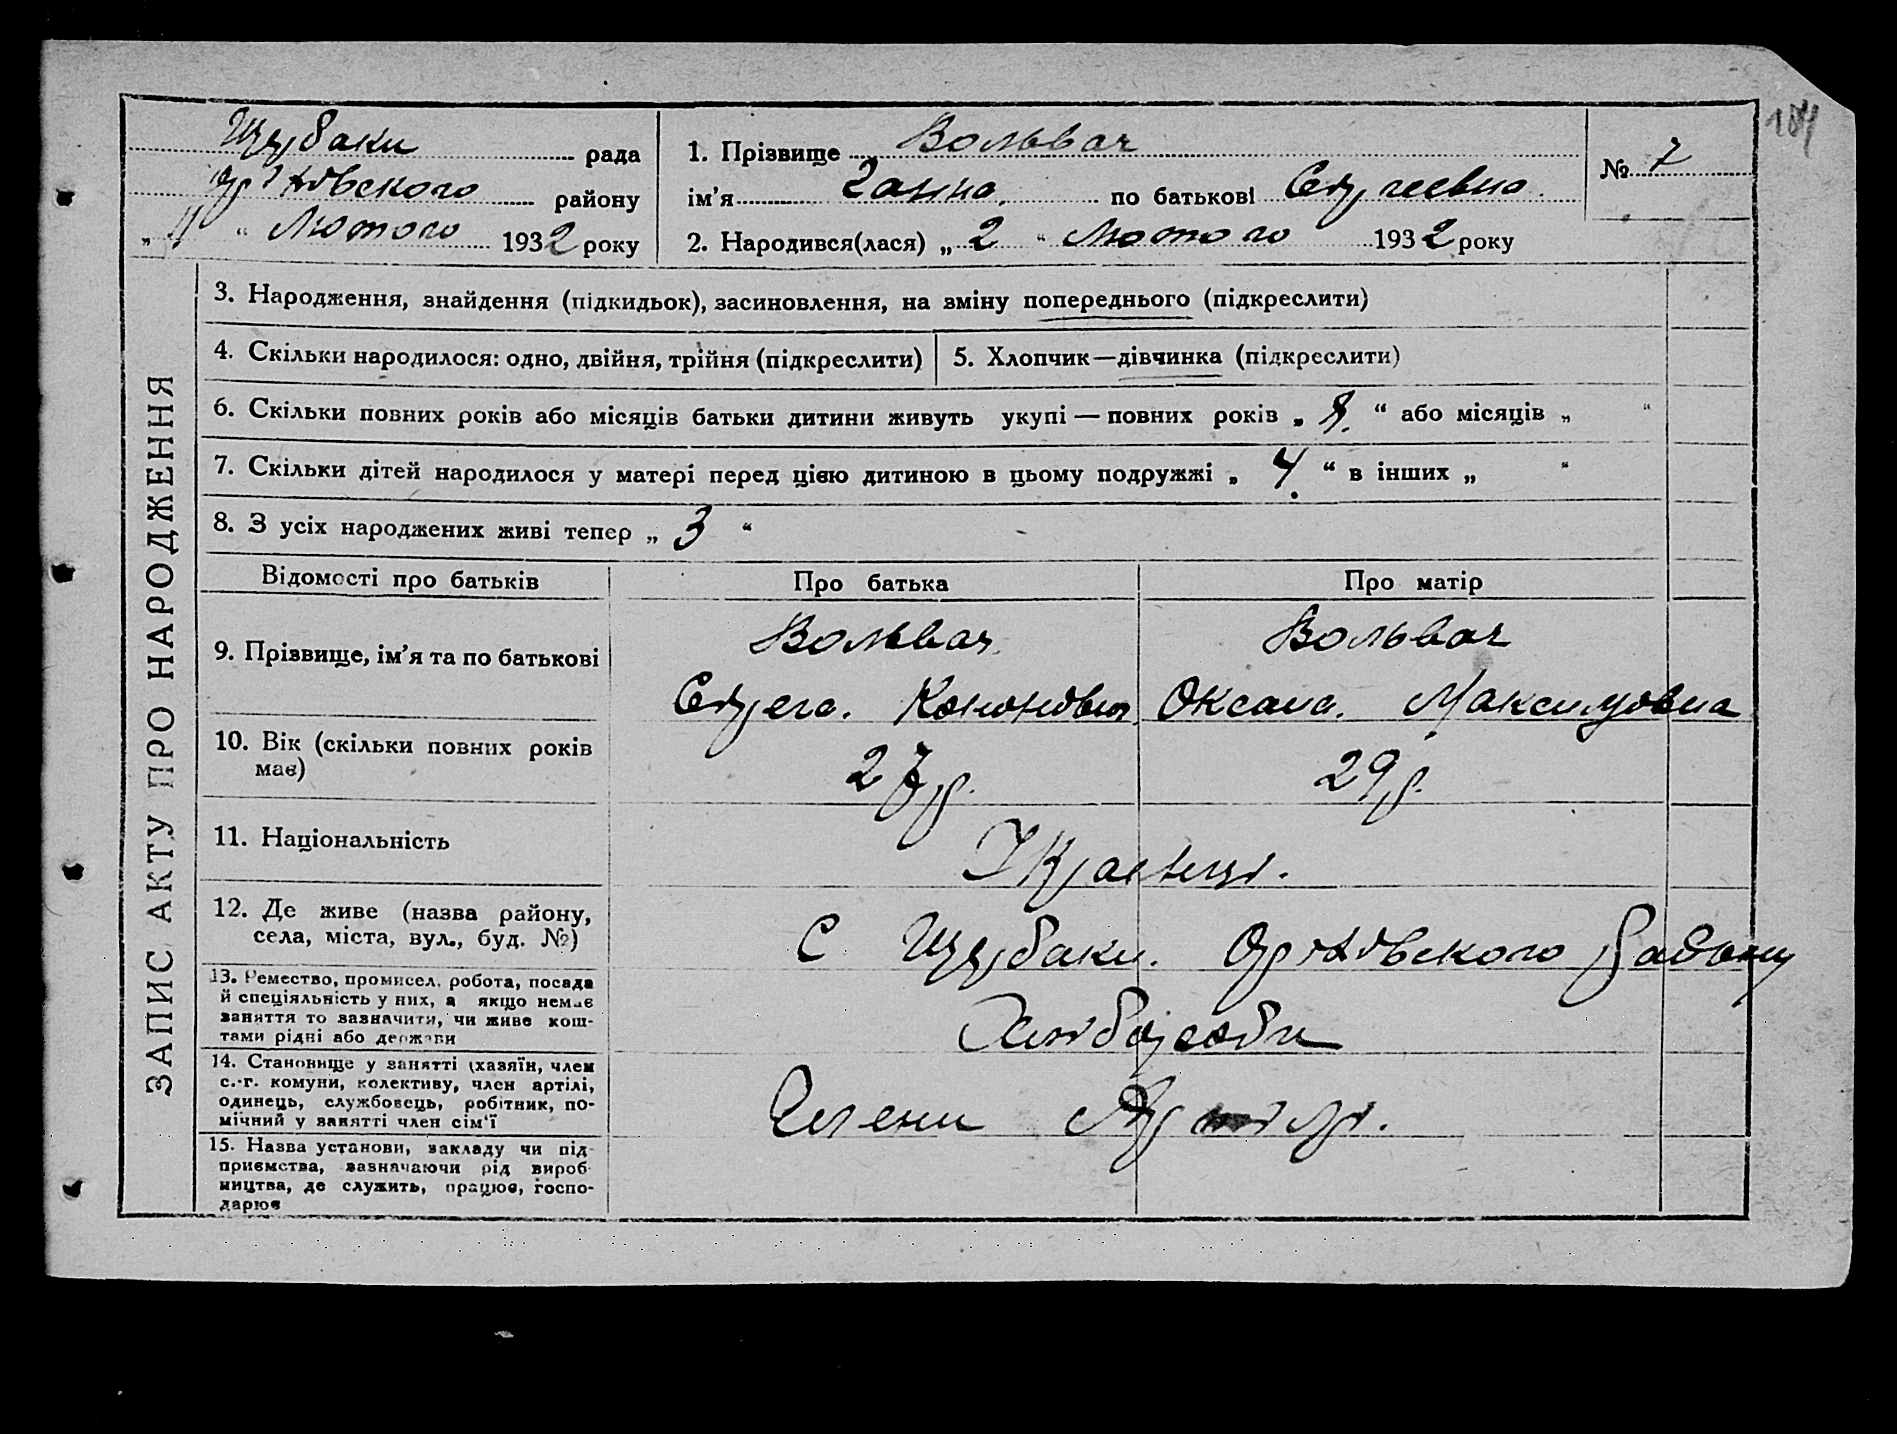 104
Щербаки рада
Оріховского району
„ 11 “ Лютого 1932 року
1. Прізвище Вольвач
ім'я Ганна. по батькові Сергеевна
№ 7
2. Народився(лася) „ 2 “ Лютого 1932 року
ЗАПИС АКТУ ПРО НАРОДЖЕННЯ
3. Народження, знайдення (підкидьок), засиновлення, на зміну попереднього (підкреслити)
4. Скільки народилося: одно, двійня, трійня (підкреслити)
5. Хлопчик—дівчинка (підкреслити)
6. Скільки повних років або місяців батьки дитини живуть укупі — повних років „ 8. “ або місяців „ “
7. Скільки дітей народилося у матері перед цією дитиною в цьому подружжі „ 4. “ в інших „ “
8. З усіх народжених живі тепер „ 3 “
Відомості про батьків
Про батька
Про матір
9. Прізвище, ім'я та по батькові
Вольвач
Сергей.
Вольвач
Оксана. Максимовна
10. Вік (скільки повних років
має)
27 р.
29 р.
11. Національність
Українці.
12. Де живе (назва району,
села, міста, вул., буд. №)
С Щербаки. Оріховского Району
13. Ремество, промисел, робота, посада
й спеціяльність у них, а якщо немає
заняття то зазначити, чи живе кош-
тами рідні або держави
Хлібороби
14. Становище у занятті (хазяїн, член
с.-г. комуни, колективу, член артілі,
одинець, службовець, робітник, по-
мічний у занятті член сім'ї
Члени Артілі.
15. Назва установи, закладу чи під-
приємства, зазначаючи рід вироб-
ництва, де служить, працює, госпо-
дарює